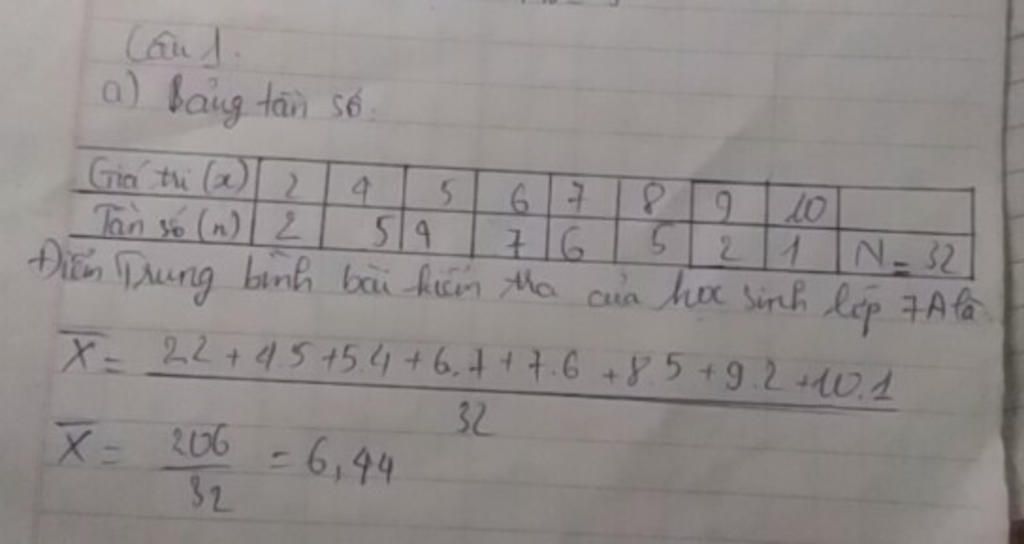 Câu 1.
a) Bảng tần số.
Giá trị (x) 2 4 5 6 7 8 9 10
Tần số (n) 2 5 4 7 6 5 2 1 N = 32
Điểm Trung bình bài kiểm tra của học sinh lớp 7A là
X̅ = 2.2 + 4.5 + 5.4 + 6.7 + 7.6 + 8.5 + 9.2 + 10.1
32
X̅ = 206 = 6,44
32